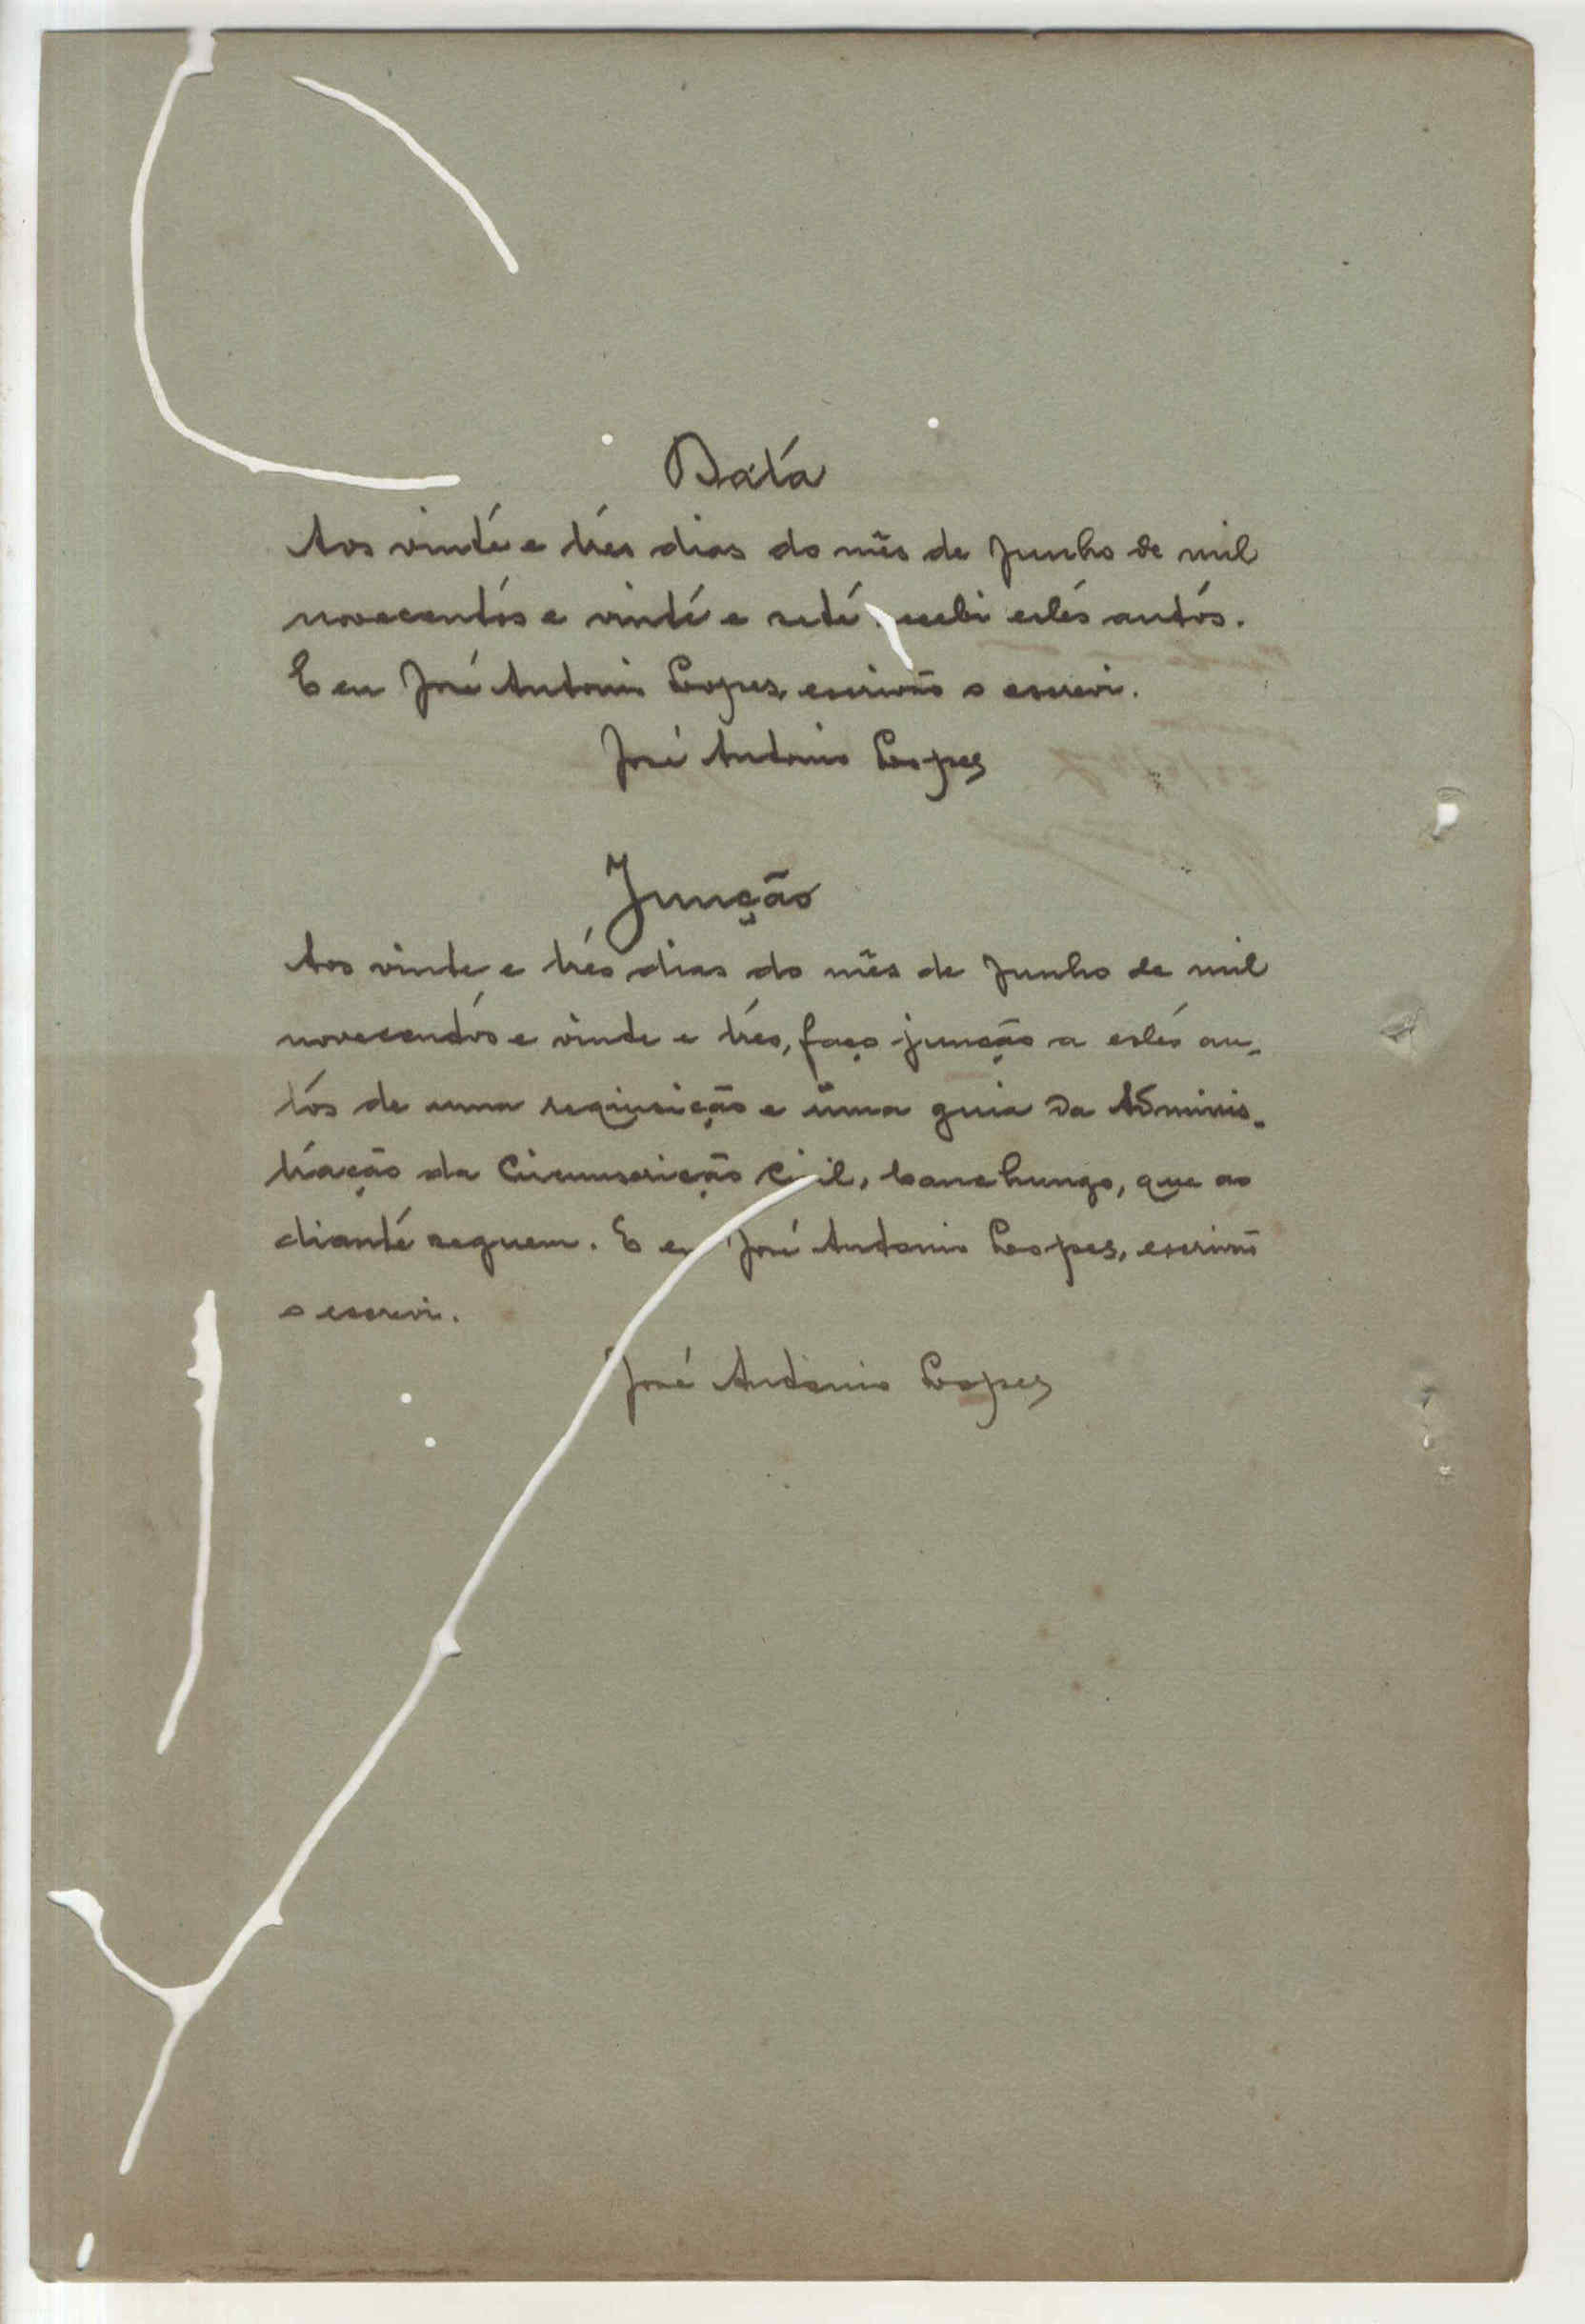 Data
Aos vinte e três dias do mês de Junho de mil
novecentos e vinte e sete recebi estes autos.
E eu José Antonio Lopes, escrivão o escrevi.
José Antonio Lopes
Junção
Aos vinte e três dias do mês de Junho de mil
novecentos e vinde e três, faço junção a estes au-
tos de uma requisição e uma guia da Adminis-
tração da Circunscrição Civil, Canchungo, que ao
diante seguem. E eu José Antonio Lopes, escrivão
o escrevi.
José Antonio Lopes